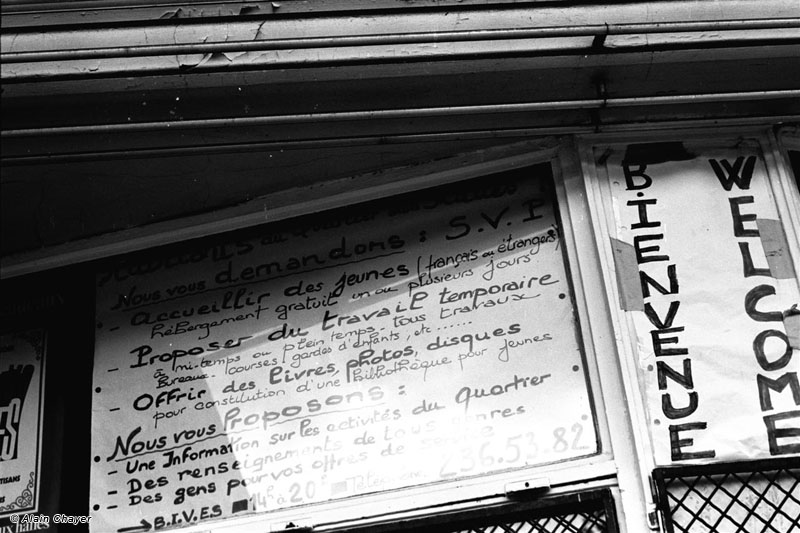 Habitants du quartier des Halles
Nous vous demandons : S.V.P
- Accueillir des jeunes (français ou étrangers)
hébergement gratuit un ou plusieurs jours
- Proposer du travail temporaire
à mi-temps ou plein temps - tous travaux
Bureaux - courses - gardes d'enfants, etc......
- Offrir des livres, photos, disques
pour constitution d'une Bibliothèque pour jeunes
Nous vous Proposons :
- Une Information sur les activités du quartier
- Des renseignements de tous genres
- Des gens pour vos offres de service
→ B.I.V.E.S 14h à 20h 236.53.82
BIENVENUE
WELCOME
© Alain Chayer